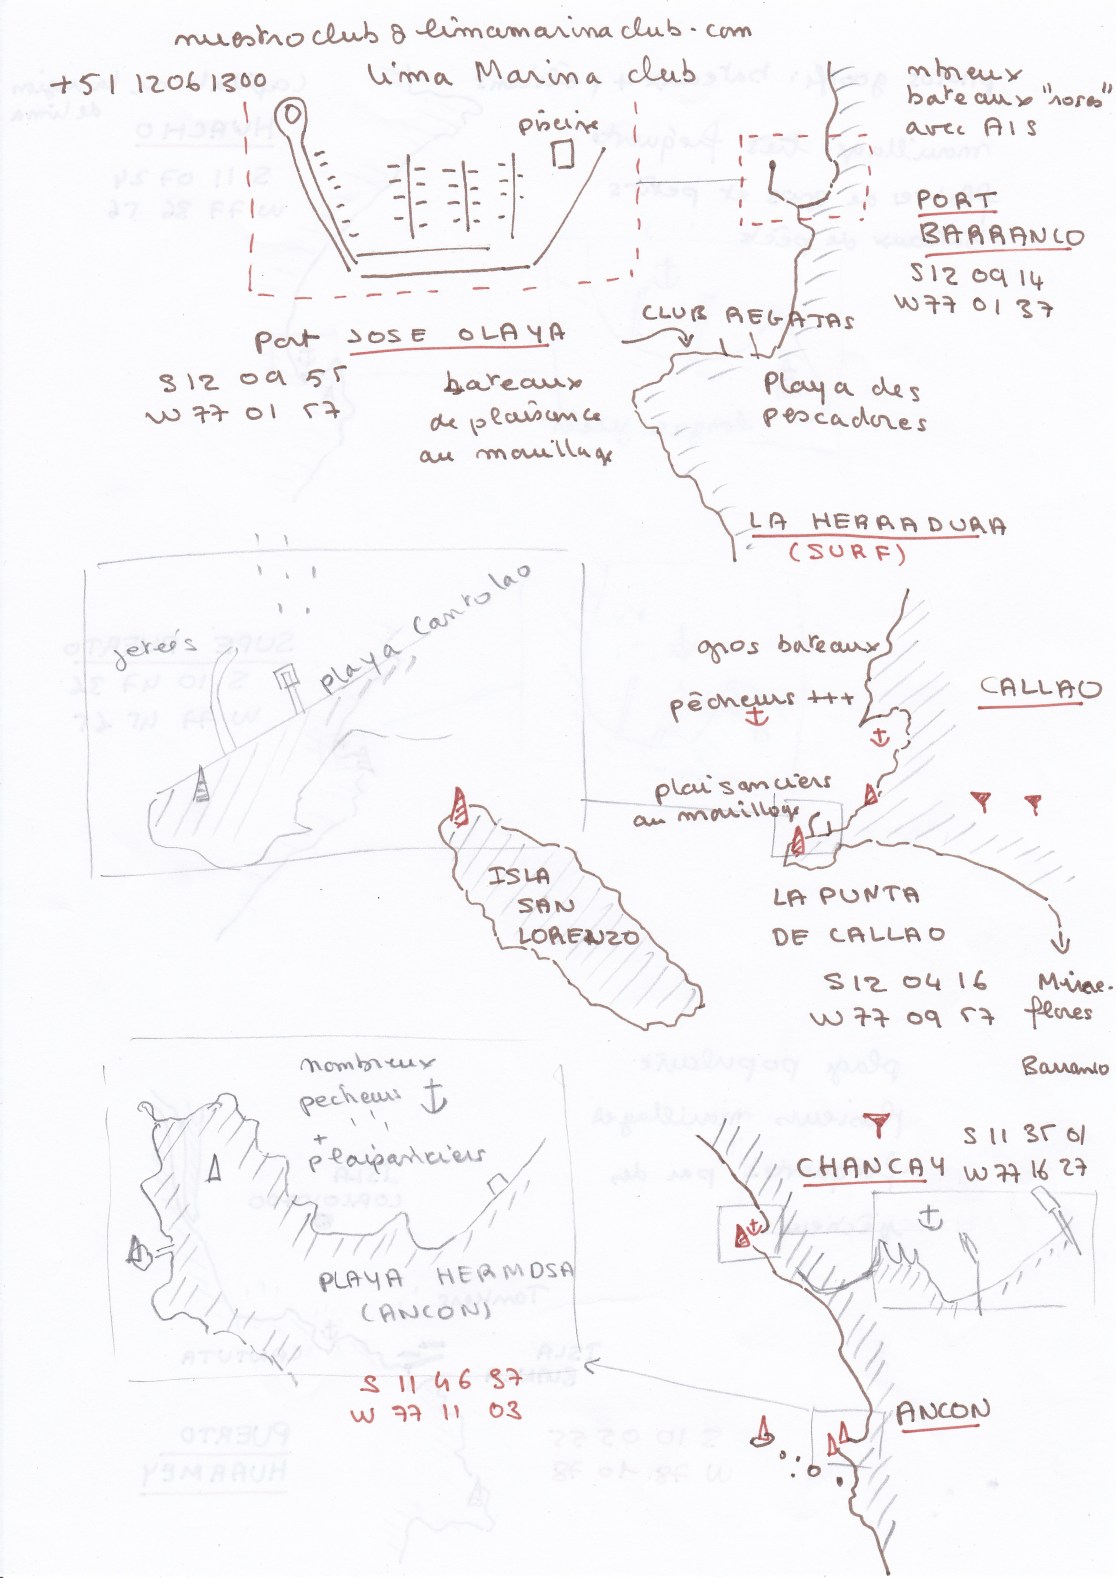 nuestroclub@limamarinaclub.com
+51 12061300
Lima Marina club
piscine
mbreux
bateaux "roses"
avec AIS
PORT
BARRANCO
S12 09 14
W77 01 37
CLUB REGATAS
Port JOSE OLAYA
S12 09 55
W 77 01 57
bateaux
de plaisance
au mouillage
Playa des
pescadores
LA HERRADURA
(SURF)
jetées
playa Cantolao
gros bateaux
pêcheurs +++
CALLAO
plaisanciers
au mouillage
ISLA
SAN
LORENZO
LA PUNTA
DE CALLAO
S12 04 16
W 77 09 57
Mirae-
flores
Barranco
nombreux
pecheurs
+
plaisanciers
PLAYA HERMOSA
(ANCON)
S 11 46 37
W 77 11 03
CHANCAY
S 11 35 01
W 77 16 27
ANCON